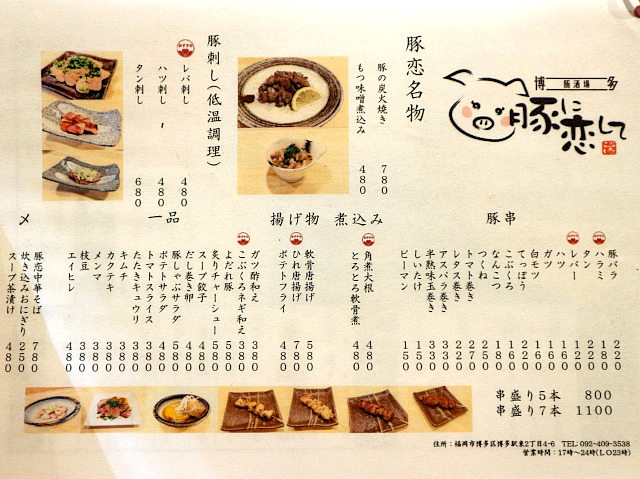 博多
豚酒場
豚に恋して
豚恋名物
豚の炭火焼き 780
もつ味噌煮込み 480
豚刺し(低温調理)
おすすめ
レバ刺し 480
ハツ刺し 480
タン刺し 680
豚串
豚バラ
ハラミ
タン
レバー
ハツ
ガツ
白モツ
てっぽう
こぶくろ
なんこつ
つくね
トマト巻き
レタス巻き
アスパラ巻き 330
半熟味玉巻き 330
しいたけ
ピーマン 150
煮込み
角煮大根 480
とろとろ軟骨煮 480
揚げ物
軟骨唐揚げ 580
ひれ唐揚げ 780
ポテトフライ 480
一品
ガツ酢和え 380
こぶくろネギ和え 380
よだれ豚
炙りチャーシュー 580
スープ餃子 480
だし巻き卵 480
豚しゃぶサラダ 580
ポテトサラダ 480
トマトスライス 380
たたきキュウリ 380
キムチ 380
カクテキ 380
メンマ 380
枝豆 380
エイヒレ 480
〆
豚恋中華そば 780
炊き込みおにぎり 250
スープ茶漬け 480
串盛り5本 800
串盛り7本 1100
住所:福岡市博多区博多駅東2丁目4-6 TEL:092-409-3538
営業時間:17時〜24時(LO23時)